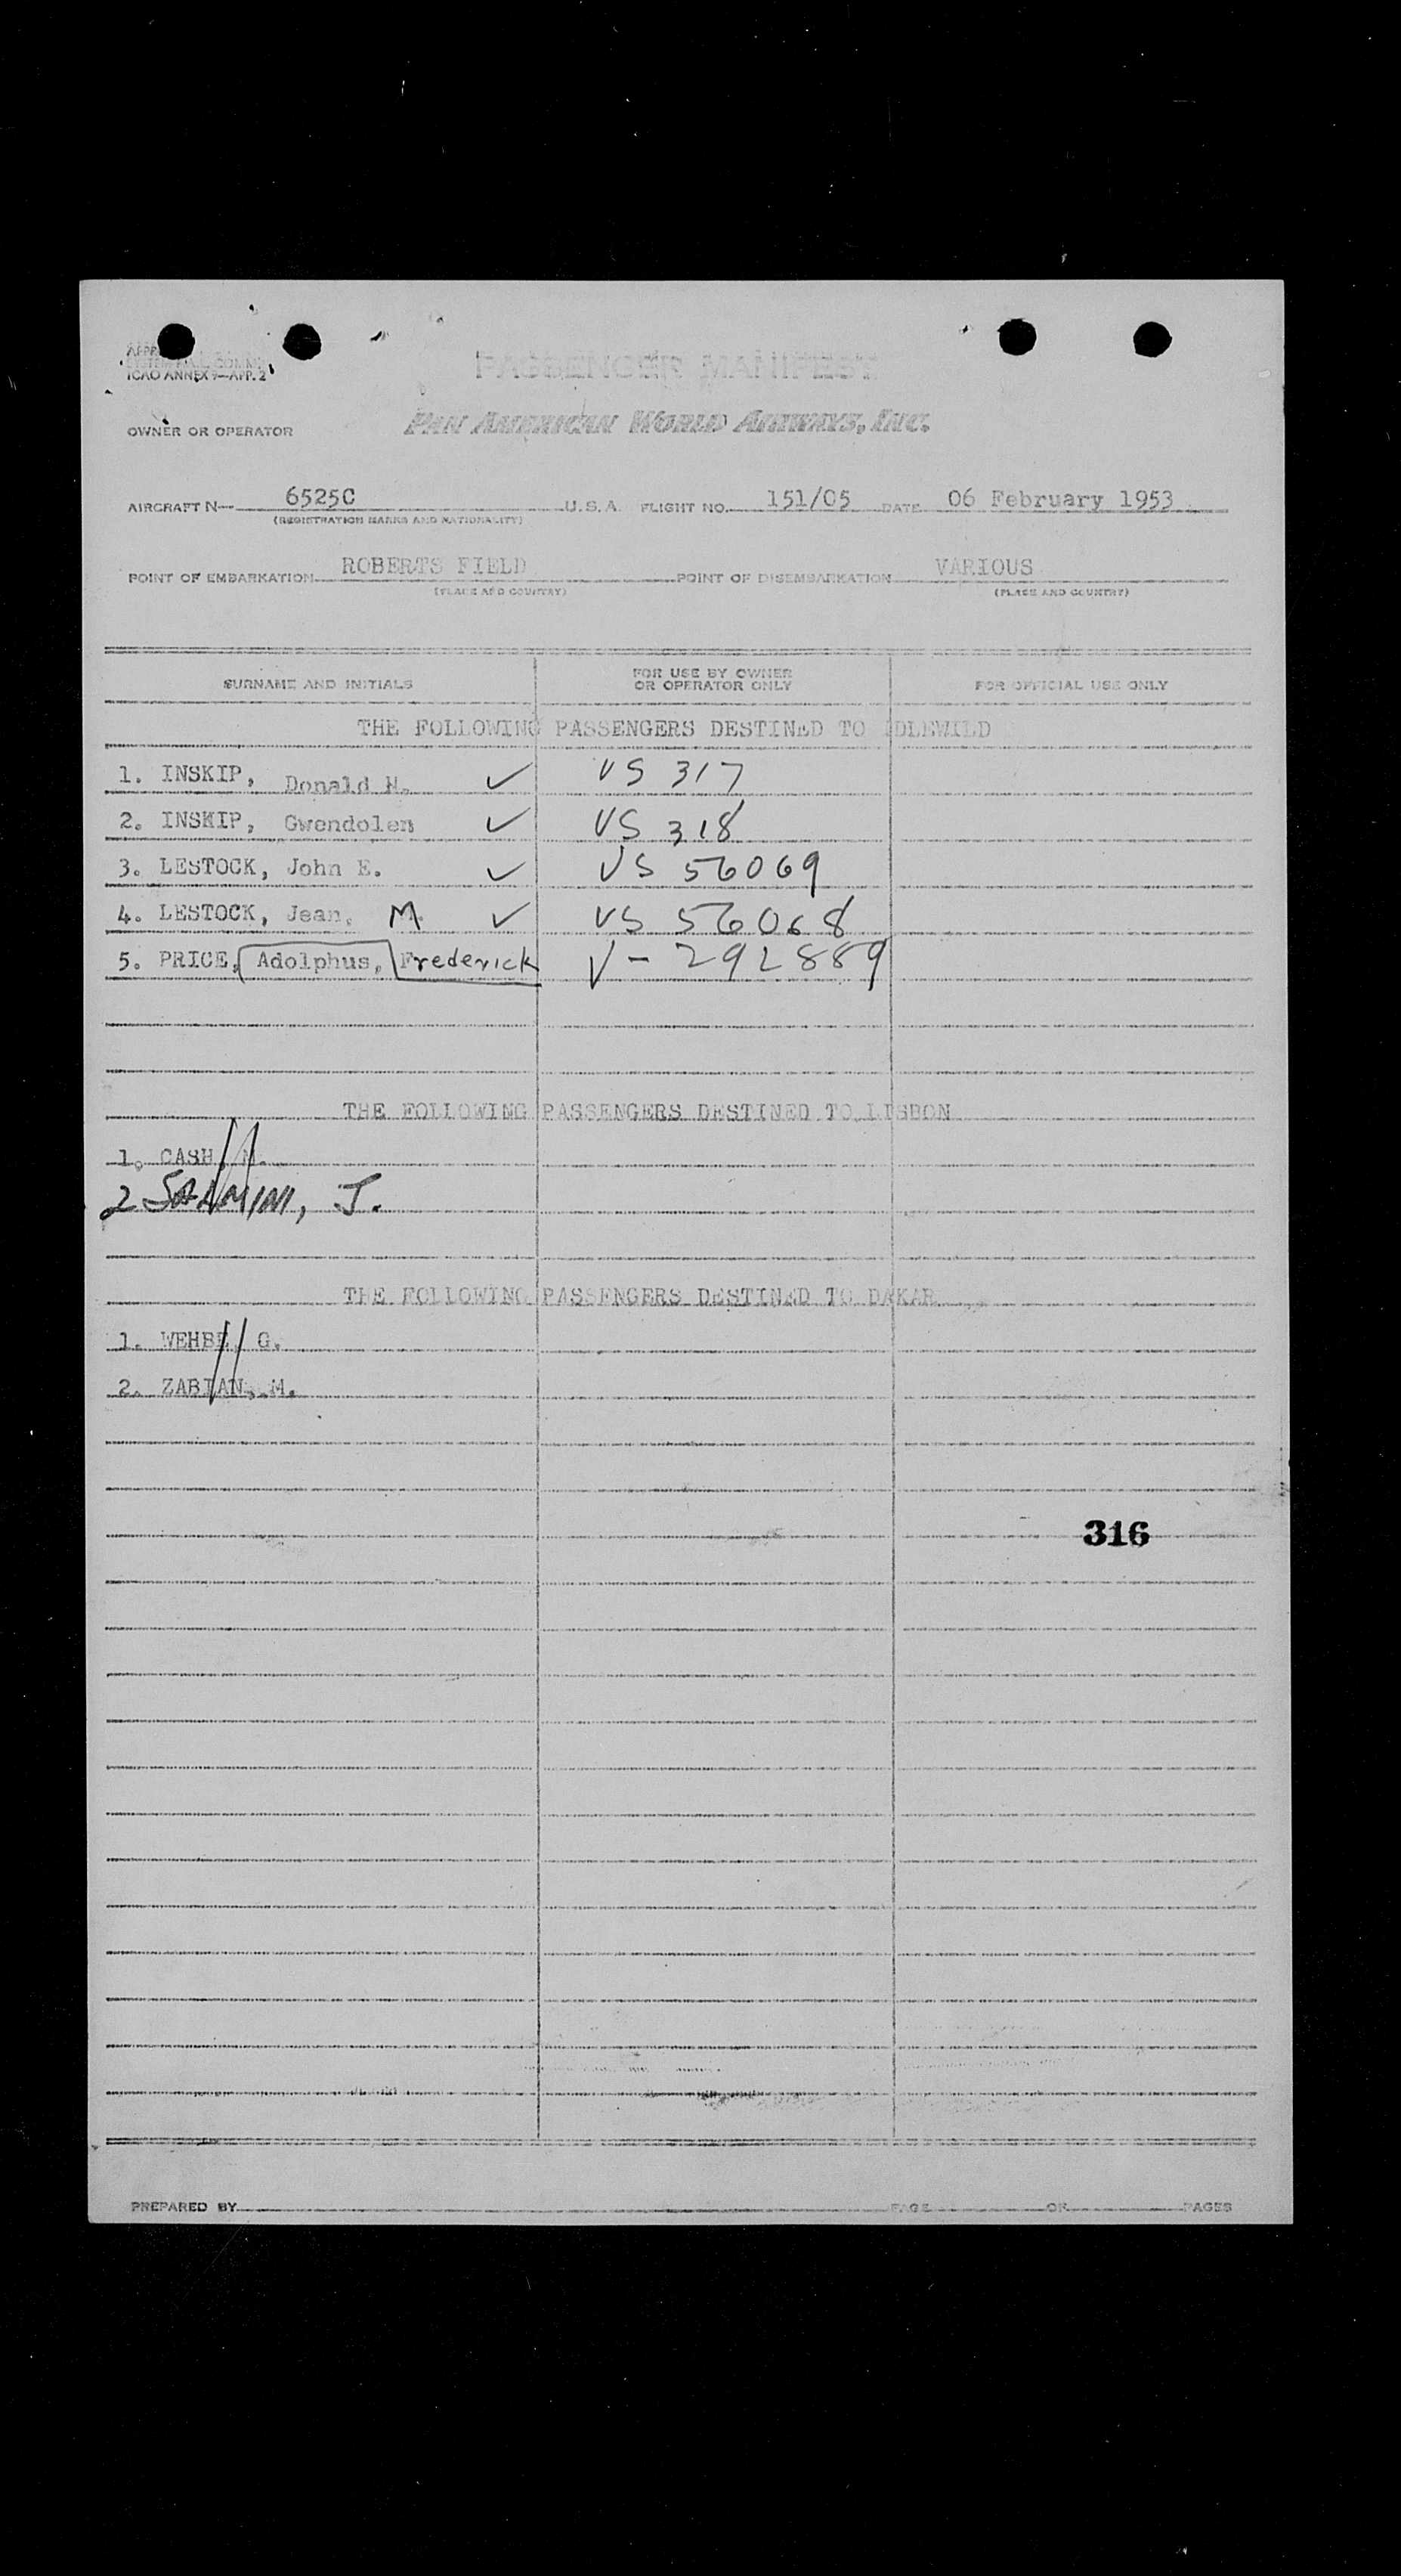 ICAO ANNEX 9—APP. 2
PASSENGER MANIFEST
OWNER OR OPERATOR PAN AMERICAN WORLD AIRWAYS, INC.
AIRCRAFT N— 6525C U.S.A. FLIGHT NO. 151/05 DATE 06 February 1953
(REGISTRATION MARKS AND NATIONALITY)
POINT OF EMBARKATION ROBERTS FIELD POINT OF DISEMBARKATION VARIOUS
(PLACE AND COUNTRY) (PLACE AND COUNTRY)
SURNAME AND INITIALS FOR USE BY OWNER OR OPERATOR ONLY FOR OFFICIAL USE ONLY
THE FOLLOWING PASSENGERS DESTINED TO IDLEWILD
1. INSKIP, Donald H. ✓ VS 317
2. INSKIP, Gwendolen ✓ VS 318
3. LESTOCK, John E. ✓ VS 56069
4. LESTOCK, Jean, M. ✓ VS 56068
5. PRICE, Adolphus, Frederick V- 292889
THE FOLLOWING PASSENGERS DESTINED TO LISBON
1. CASH, M.
2 J.
THE FOLLOWING PASSENGERS DESTINED TO DAKAR
1. WEHBE, G.
2. ZABIAN, M.
316
PREPARED BY PAGE OF PAGES